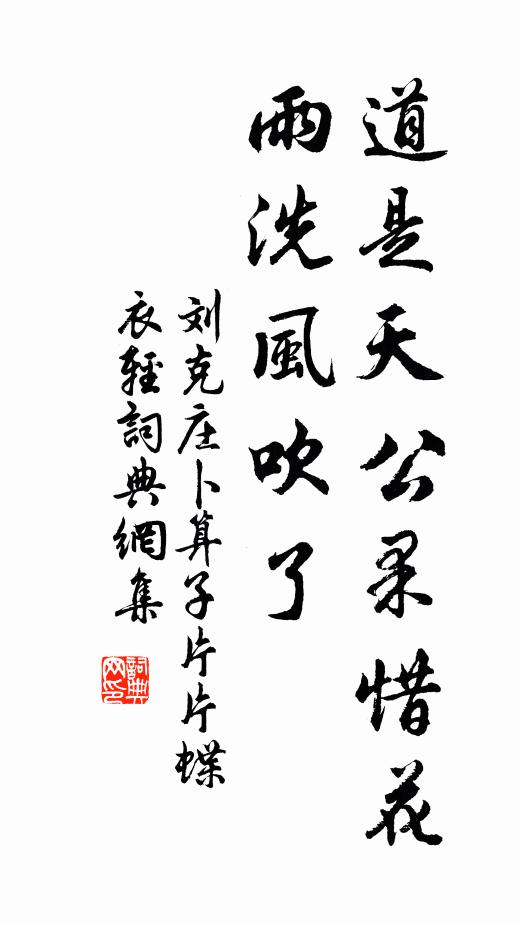 道是天公果惜花
雨洗風吹了
刘克庄卜算子片片蝶
衣輕詞典網集
詞典
网印